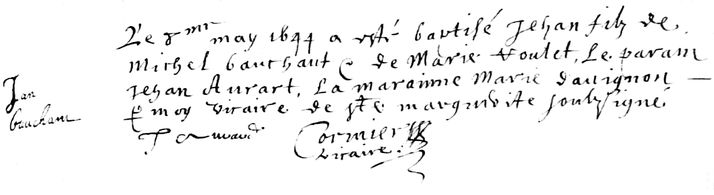 Le 8me may 1644 a esté baptisé Jehan filz de
Michel Gauchant & de Marie Voulet, Le parain
Jehan Aurart, La maraine Marie dauignon
& moy vicaire de ste marguerite soubsigné
Jan
Gauchant
Cormier
vicaire